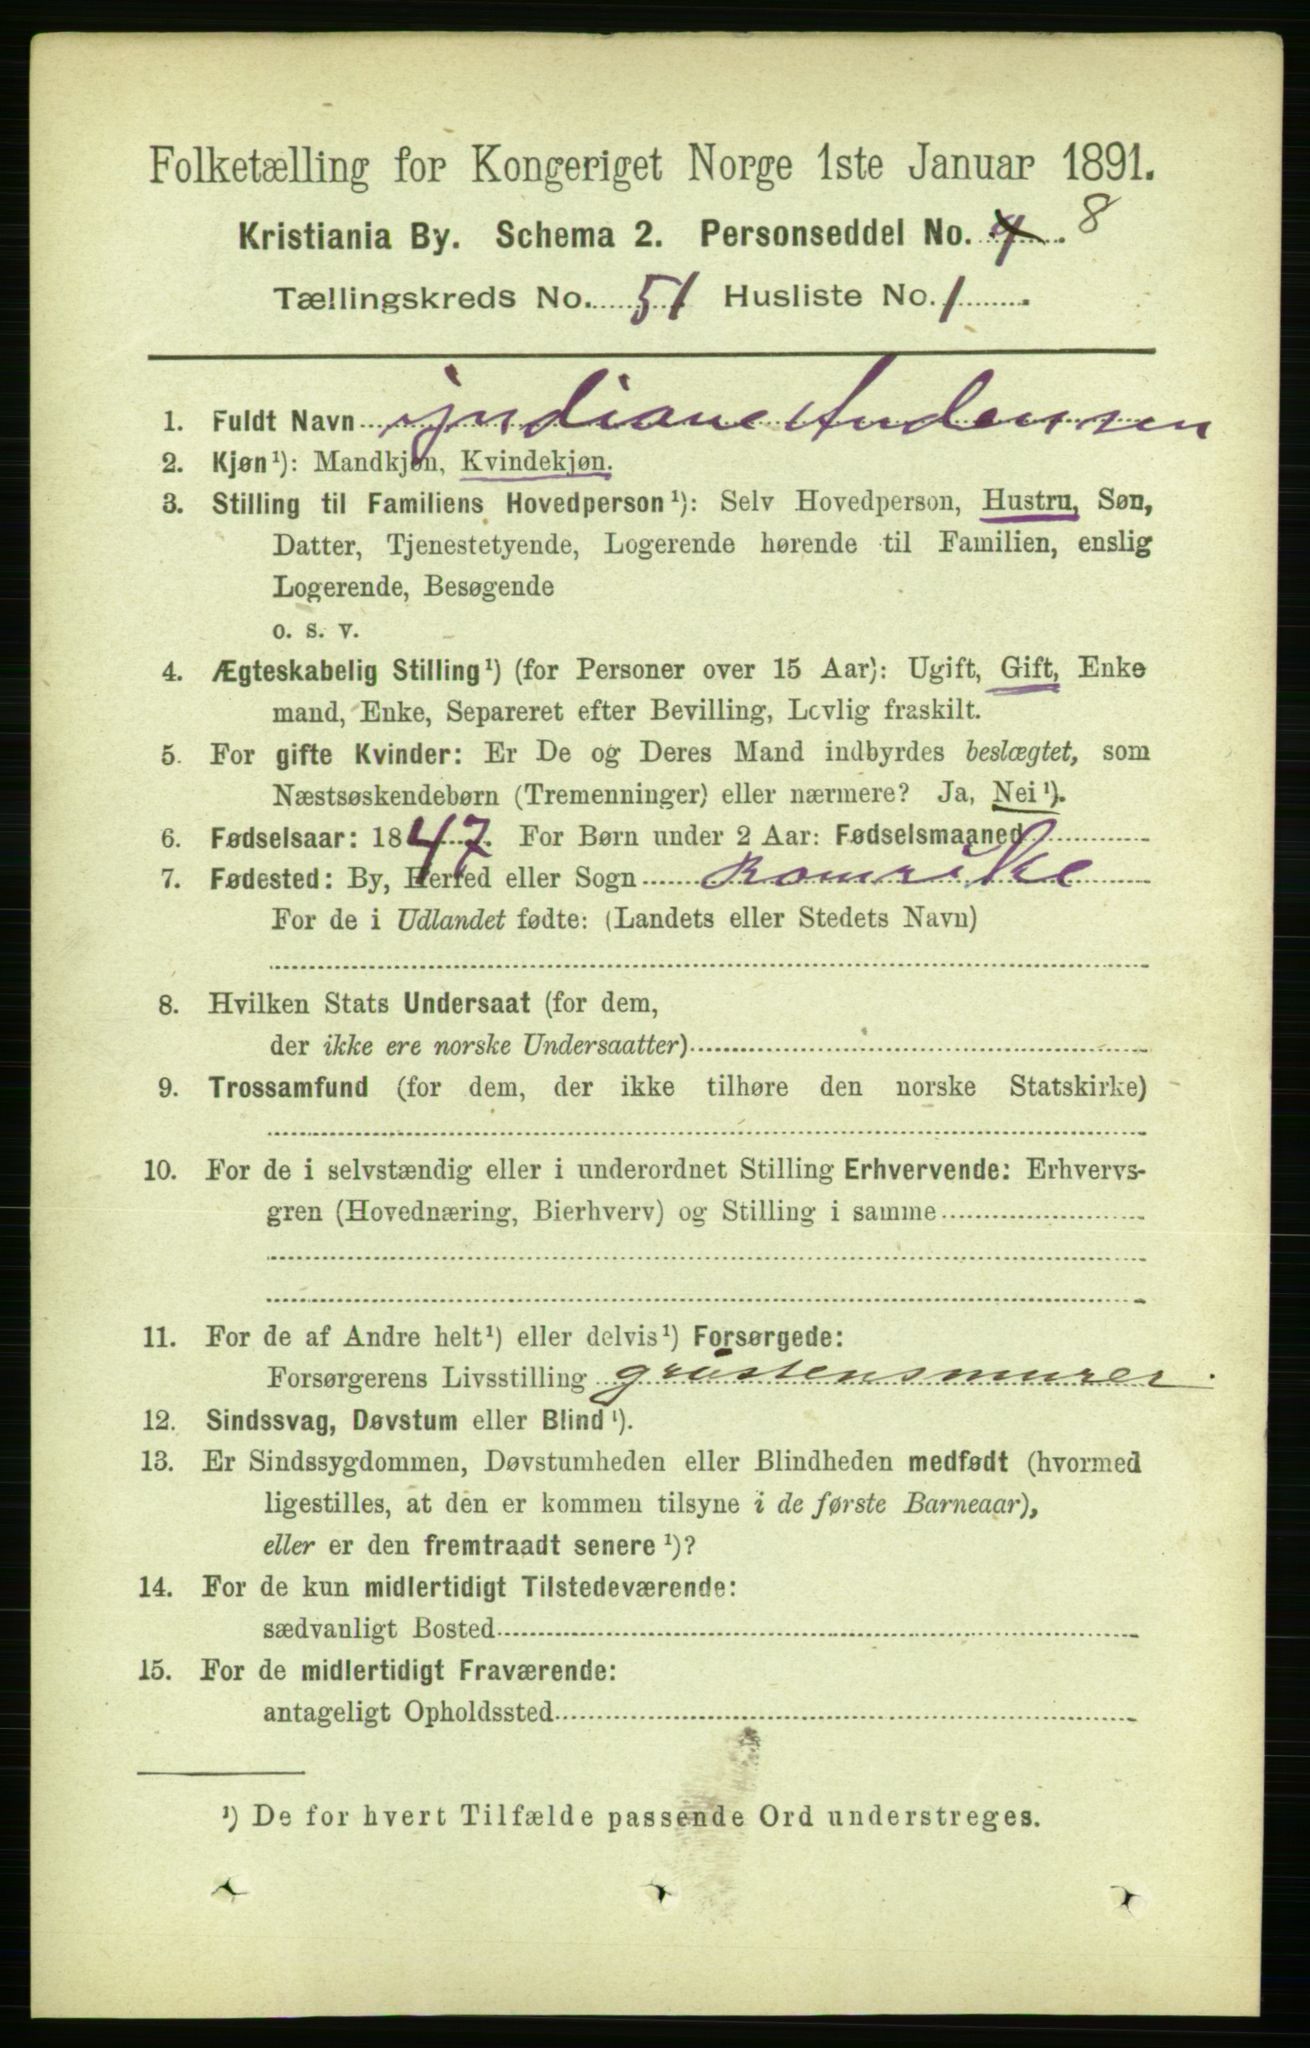 Folketælling for Kongeriget Norge 1ste Januar 1891.
Kristiania By. Schema 2. Personseddel No. 8
Tællingskreds No. 51 Husliste No. 1
1. Fuldt Navn Indiane Andersen
2. Kjøn¹): Mandkjøn, Kvindekjøn.
3. Stilling til Familiens Hovedperson¹): Selv Hovedperson, Hustru, Søn,
Datter, Tjenestetyende, Logerende hørende til Familien, enslig
Logerende, Besøgende
o. s. v.
4. Ægteskabelig Stilling¹) (for Personer over 15 Aar): Ugift, Gift, Enke
mand, Enke, Separeret efter Bevilling, Lovlig fraskilt.
5. For gifte Kvinder: Er De og Deres Mand indbyrdes beslægtet, som
Næstsøskendebørn (Tremenninger) eller nærmere? Ja, Nei¹).
6. Fødselsaar: 1847. For Børn under 2 Aar: Fødselsmaaned
7. Fødested: By, Herred eller Sogn Romerike
For de i Udlandet fødte: (Landets eller Stedets Navn)
8. Hvilken Stats Undersaat (for dem,
der ikke ere norske Undersaatter)
9. Trossamfund (for dem, der ikke tilhøre den norske Statskirke)
10. For de i selvstændig eller i underordnet Stilling Erhvervende: Erhvervs-
gren (Hovednæring, Bierhverv) og Stilling i samme
11. For de af Andre helt¹) eller delvis¹) Forsørgede:
Forsørgerens Livsstilling gråstensmurer.
12. Sindssvag, Døvstum eller Blind¹).
13. Er Sindssygdommen, Døvstumheden eller Blindheden medfødt (hvormed
ligestilles, at den er kommen tilsyne i de første Barneaar),
eller er den fremtraadt senere¹)?
14. For de kun midlertidigt Tilstedeværende:
sædvanligt Bosted
15. For de midlertidigt Fraværende:
antageligt Opholdssted
¹) De for hvert Tilfælde passende Ord understreges.